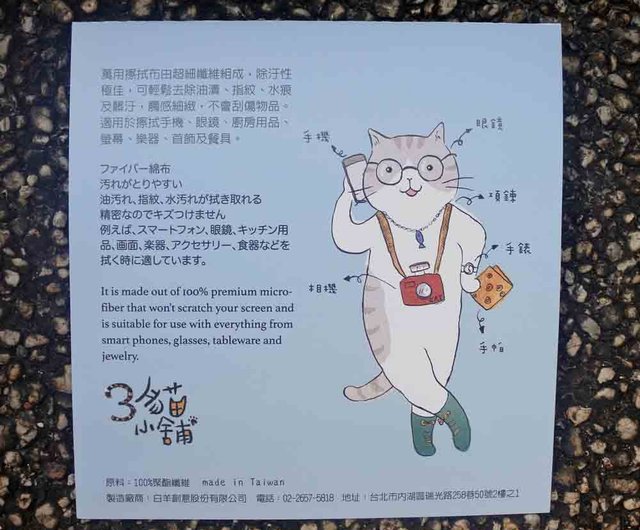 萬用擦拭布由超細纖維組成，除汙性
極佳，可輕鬆去除油漬、指紋、水痕
及髒汙，觸感細緻，不會刮傷物品。
適用於擦拭手機、眼鏡、廚房用品、
螢幕、樂器、首飾及餐具。
ファイバー綿布
汚れがとりやすい
油汚れ、指紋、水汚れが拭き取れる
精密なのでキズつけません
例えば、スマートフォン、眼鏡、キッチン用
品、画面、楽器、アクセサリー、食器などを
拭く時に適しています。
It is made out of 100% premium micro-
fiber that won't scratch your screen and
is suitable for use with everything from
smart phones, glasses, tableware and
jewelry.
手機
眼鏡
項鍊
手錶
相機
手帕
3貓
小舖
原料：100%聚酯纖維 made in Taiwan
製造廠商：白羊創意股份有限公司 電話：02-2657-5818 地址：台北市內湖區瑞光路258巷50號2樓之1